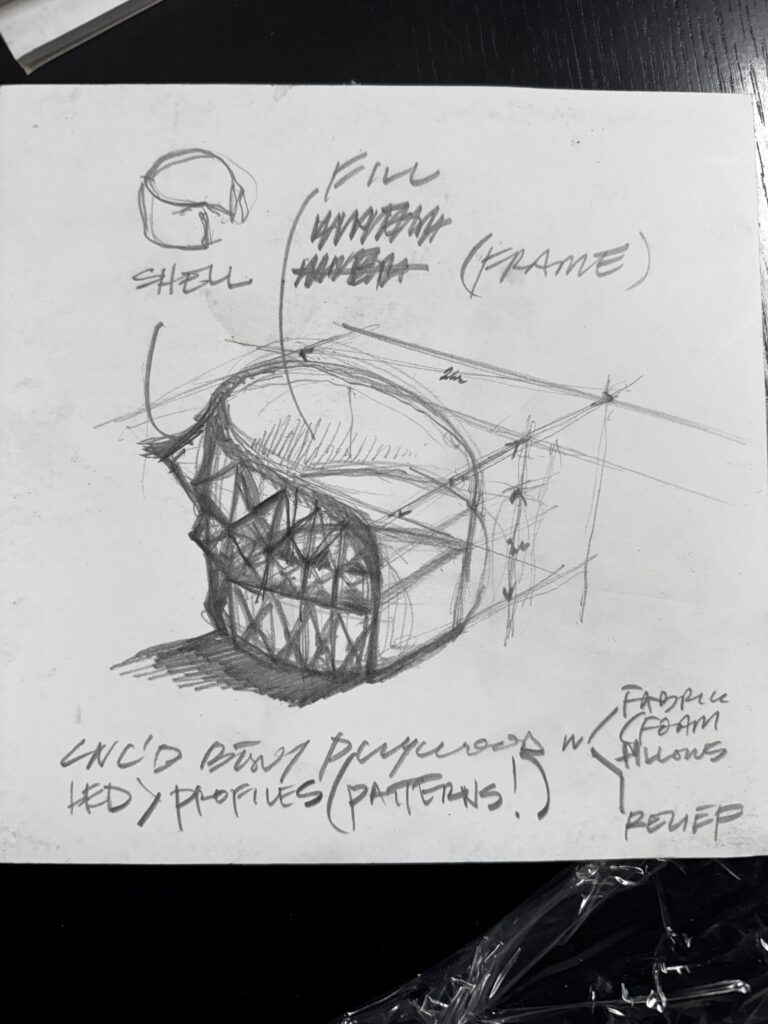 FILL
SHELL
(FRAME)
CNC'D BENT PLYWOOD W
PROFILES (PATTERNS!)
FABRIC
FOAM
PILLOWS
RELIEF